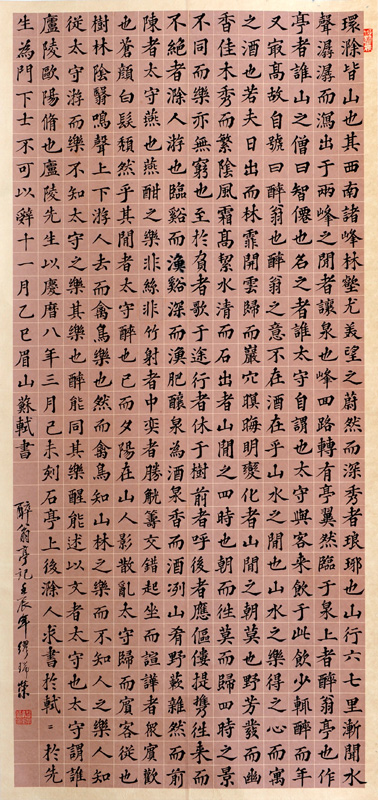 環滁皆山也其西南諸峰林壑尤美望之蔚然而深秀者琅琊也山行六七里漸聞水
聲潺潺而瀉出于兩峰之間者讓泉也峰回路轉有亭翼然臨于泉上者醉翁亭也作
亭者誰山之僧曰智僊也名之者誰太守自謂也太守與客來飲于此飲少輒醉而年
又寂高故自號曰醉翁也醉翁之意不在酒在乎山水之間也山水之樂得之心而寓
之酒也若夫日出而林霏開雲歸而巖穴暝晦明變化者山間之朝莫也野芳發而幽
香佳木秀而繁陰風霜高絜水清而石出者山間之四時也朝而往莫而歸四時之景
不同而樂亦無窮也至於負者歌于途行者休于樹前者呼後者應傴僂提攜往來而
不絕者滁人游也臨谿而漁谿深而漁肥釀泉為酒泉香而酒冽山肴野蔌雜然而前
陳者太守燕也燕酣之樂非絲非竹射者中弈者勝觥籌交錯起坐而諠譁者眾賓歡
也蒼顏白髮頹然乎其間者太守醉也已而夕陽在山人影散亂太守歸而賓客從也
樹林陰翳鳴聲上下游人去而禽鳥樂也然而禽鳥知山林之樂而不知人之樂人知
從太守游而樂不知太守之樂其樂也醉能同其樂醒能述以文者太守也太守謂誰
廬陵歐陽脩也廬陵先生以慶曆八年三月己未刻石亭上後滁人求書於軾〻於先
生為門下士不可以辭十一月乙巳眉山蘇軾書
醉翁亭記壬辰年繆瑞榮